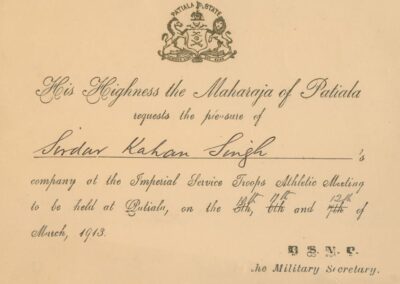 PATIALA STATE
His Highness the Maharaja of Patiala
requests the pleasure of
Sirdar Kahan Singh 's
company at the Imperial Service Troops Athletic Meeting
10th 11th 12th
to be held at Patiala, on the 5th, 6th and 7th of
March, 1913.
R.S.V.P.
The Military Secretary.